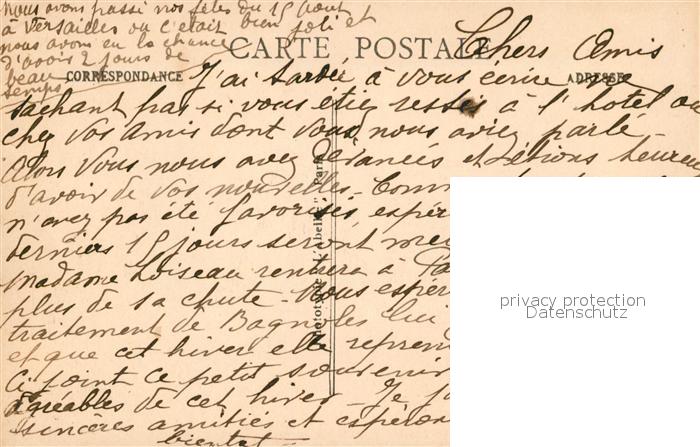 Nous avons passé nos fêtes du 15 Août
à Versailles ou c'était bien joli et
nous avons eu la chance
d'avoir 2 jours de
beau
temps
CARTE POSTALE
CORRESPONDANCE
ADRESSE
Chers Amis
J'ai tardé à vous écrire ne
sachant pas si vous étiez restés à l'hotel ou
chez vos amis dont vous nous aviez parlé
Alors vous nous avez devancés et étions heureux
d'avoir de vos nouvelles
n'avez pas été favorisés
derniers 15 jours seront
Madame Loiseau rentrera à
plus de sa chute - Nous
traitement de Bagnoles lui
et que cet hiver elle
Ci joint ce petit souvenir
agréables de cet hiver - Je
sincères amitiés et
bientot
Phototypie "L'Abeille", Paris
privacy protection
Datenschutz